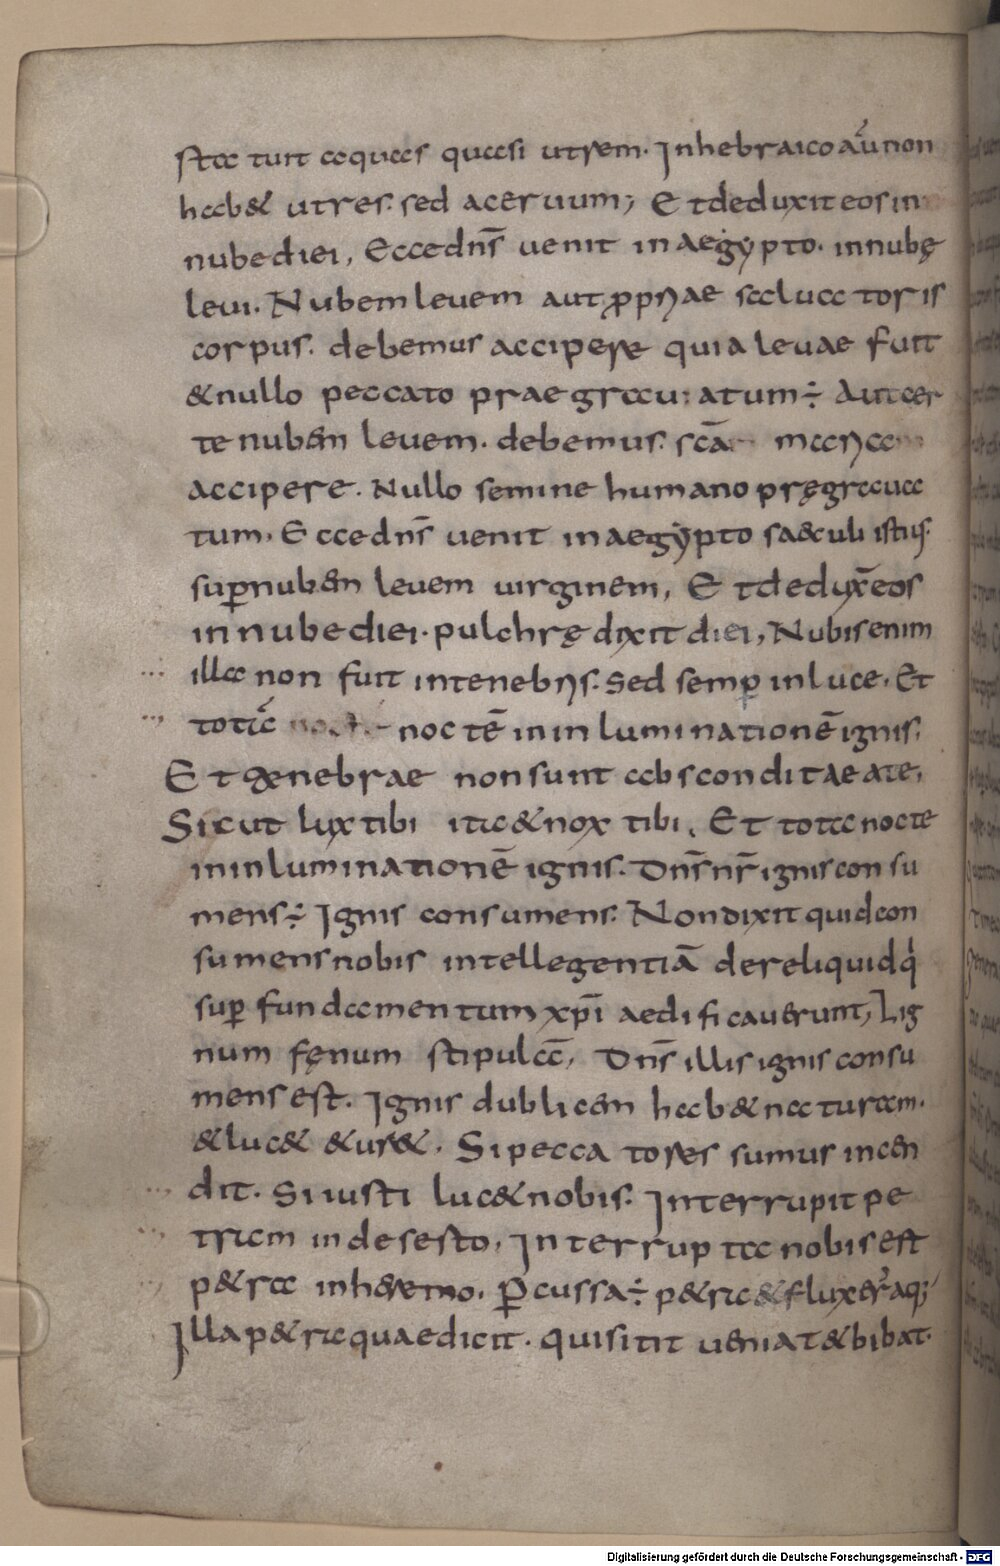 statuit aquas quasi utrem. Inhebraico aũ non
hab& utres. sed aceruum; Et deduxit eos in
nube diei, Ecce dn̄s uenit in aegypto. in nubę
leui. Nubem leuem aut p̱priae saluatoris
corpus. debemus accipere quia leuae fuit
& nullo peccato praegrauatum ÷ Aut cer
te nubem leuem. debemus. sc̄am mariam
accipere. Nullo semine humano pręgraua
tum. Ecce dn̄s uenit in aegypto saeculi istius.
suꝑ nubem leuem uirginem, Et deduxr̄ eos
in nube diei. pulchrę dixit diei, Nubis enim
illa non fuit in tenebris. Sed semꝑ in luce. Et
tota nocte noctē in inluminationē ignis.
Et tenebrae non sunt absconditae a te,
Sicut lux tibi ita & nox tibi, Et tota nocte
in inluminationē ignis. Dn̄s nr̄ ignis consu
mens ÷ Ignis consumens. Non dixit quid con
sumens nobis intellegentiā dereliquid q̇
suꝑ fundamentum xp̄i aedificauerunt, Lig
num fęnum stipulā, Dn̄s illis ignis consu
mens est. Ignis dublicem hab& naturam.
& luc& & ur&. Si peccatores sumus incen
dit. Si iusti luc& nobis. Interrupit pe
tram in desesto, Interrupta nobis est
p&ra in heremo. Ꝑcussa ÷ p&ra & fluxer̄ aq;
Illa p&ra quae dicit. qui sitit ueniat & bibat.
Digitalisierung gefördert durch die Deutsche Forschungsgemeinschaft - DFG